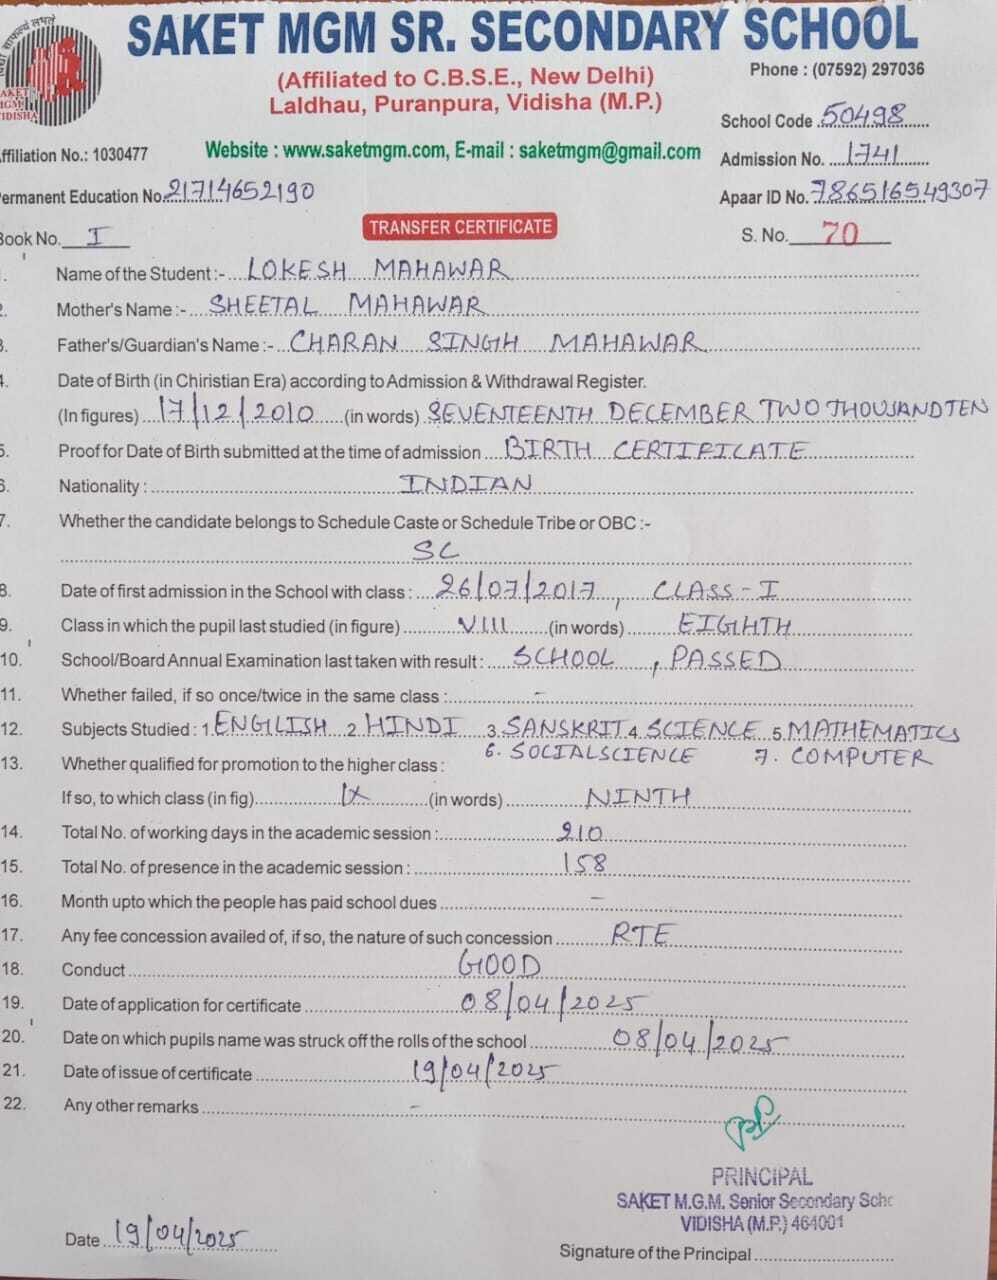 SAKET MGM SR. SECONDARY SCHOOL
(Affiliated to C.B.S.E., New Delhi)
Phone : (07592) 297036
Laldhau, Puranpura, Vidisha (M.P.)
SAKET
MGM
VIDISHA
School Code 50498
ffiliation No.: 1030477
Website : www.saketmgm.com, E-mail : saketmgm@gmail.com
Admission No. 1741
ermanent Education No 21714652190
Apaar ID No. 786516549307
Book No. I
TRANSFER CERTIFICATE
S. No. 70
1. Name of the Student :- LOKESH MAHAWAR
2. Mother's Name :- SHEETAL MAHAWAR
3. Father's/Guardian's Name :- CHARAN SINGH MAHAWAR
4. Date of Birth (in Chiristian Era) according to Admission & Withdrawal Register.
(In figures) 17/12/2010 (in words) SEVENTEENTH DECEMBER TWO THOUSAND TEN
5. Proof for Date of Birth submitted at the time of admission BIRTH CERTIFICATE
6. Nationality : INDIAN
7. Whether the candidate belongs to Schedule Caste or Schedule Tribe or OBC :-
SC
8. Date of first admission in the School with class : 26/07/2017, CLASS-I
9. Class in which the pupil last studied (in figure) VIII (in words) EIGHTH
10. School/Board Annual Examination last taken with result : SCHOOL, PASSED
11. Whether failed, if so once/twice in the same class : -
12. Subjects Studied : 1. ENGLISH 2. HINDI 3. SANSKRIT 4. SCIENCE 5. MATHEMATICS
6. SOCIALSCIENCE 7. COMPUTER
13. Whether qualified for promotion to the higher class :
If so, to which class (in fig) IX (in words) NINTH
14. Total No. of working days in the academic session : 210
15. Total No. of presence in the academic session : 158
16. Month upto which the people has paid school dues -
17. Any fee concession availed of, if so, the nature of such concession RTE
18. Conduct GOOD
19. Date of application for certificate 08/04/2025
20. Date on which pupils name was struck off the rolls of the school 08/04/2025
21. Date of issue of certificate 19/04/2025
22. Any other remarks -
PRINCIPAL
SAKET M.G.M. Senior Secondary Scho
VIDISHA (M.P.) 464001
Date 19/04/2025
Signature of the Principal